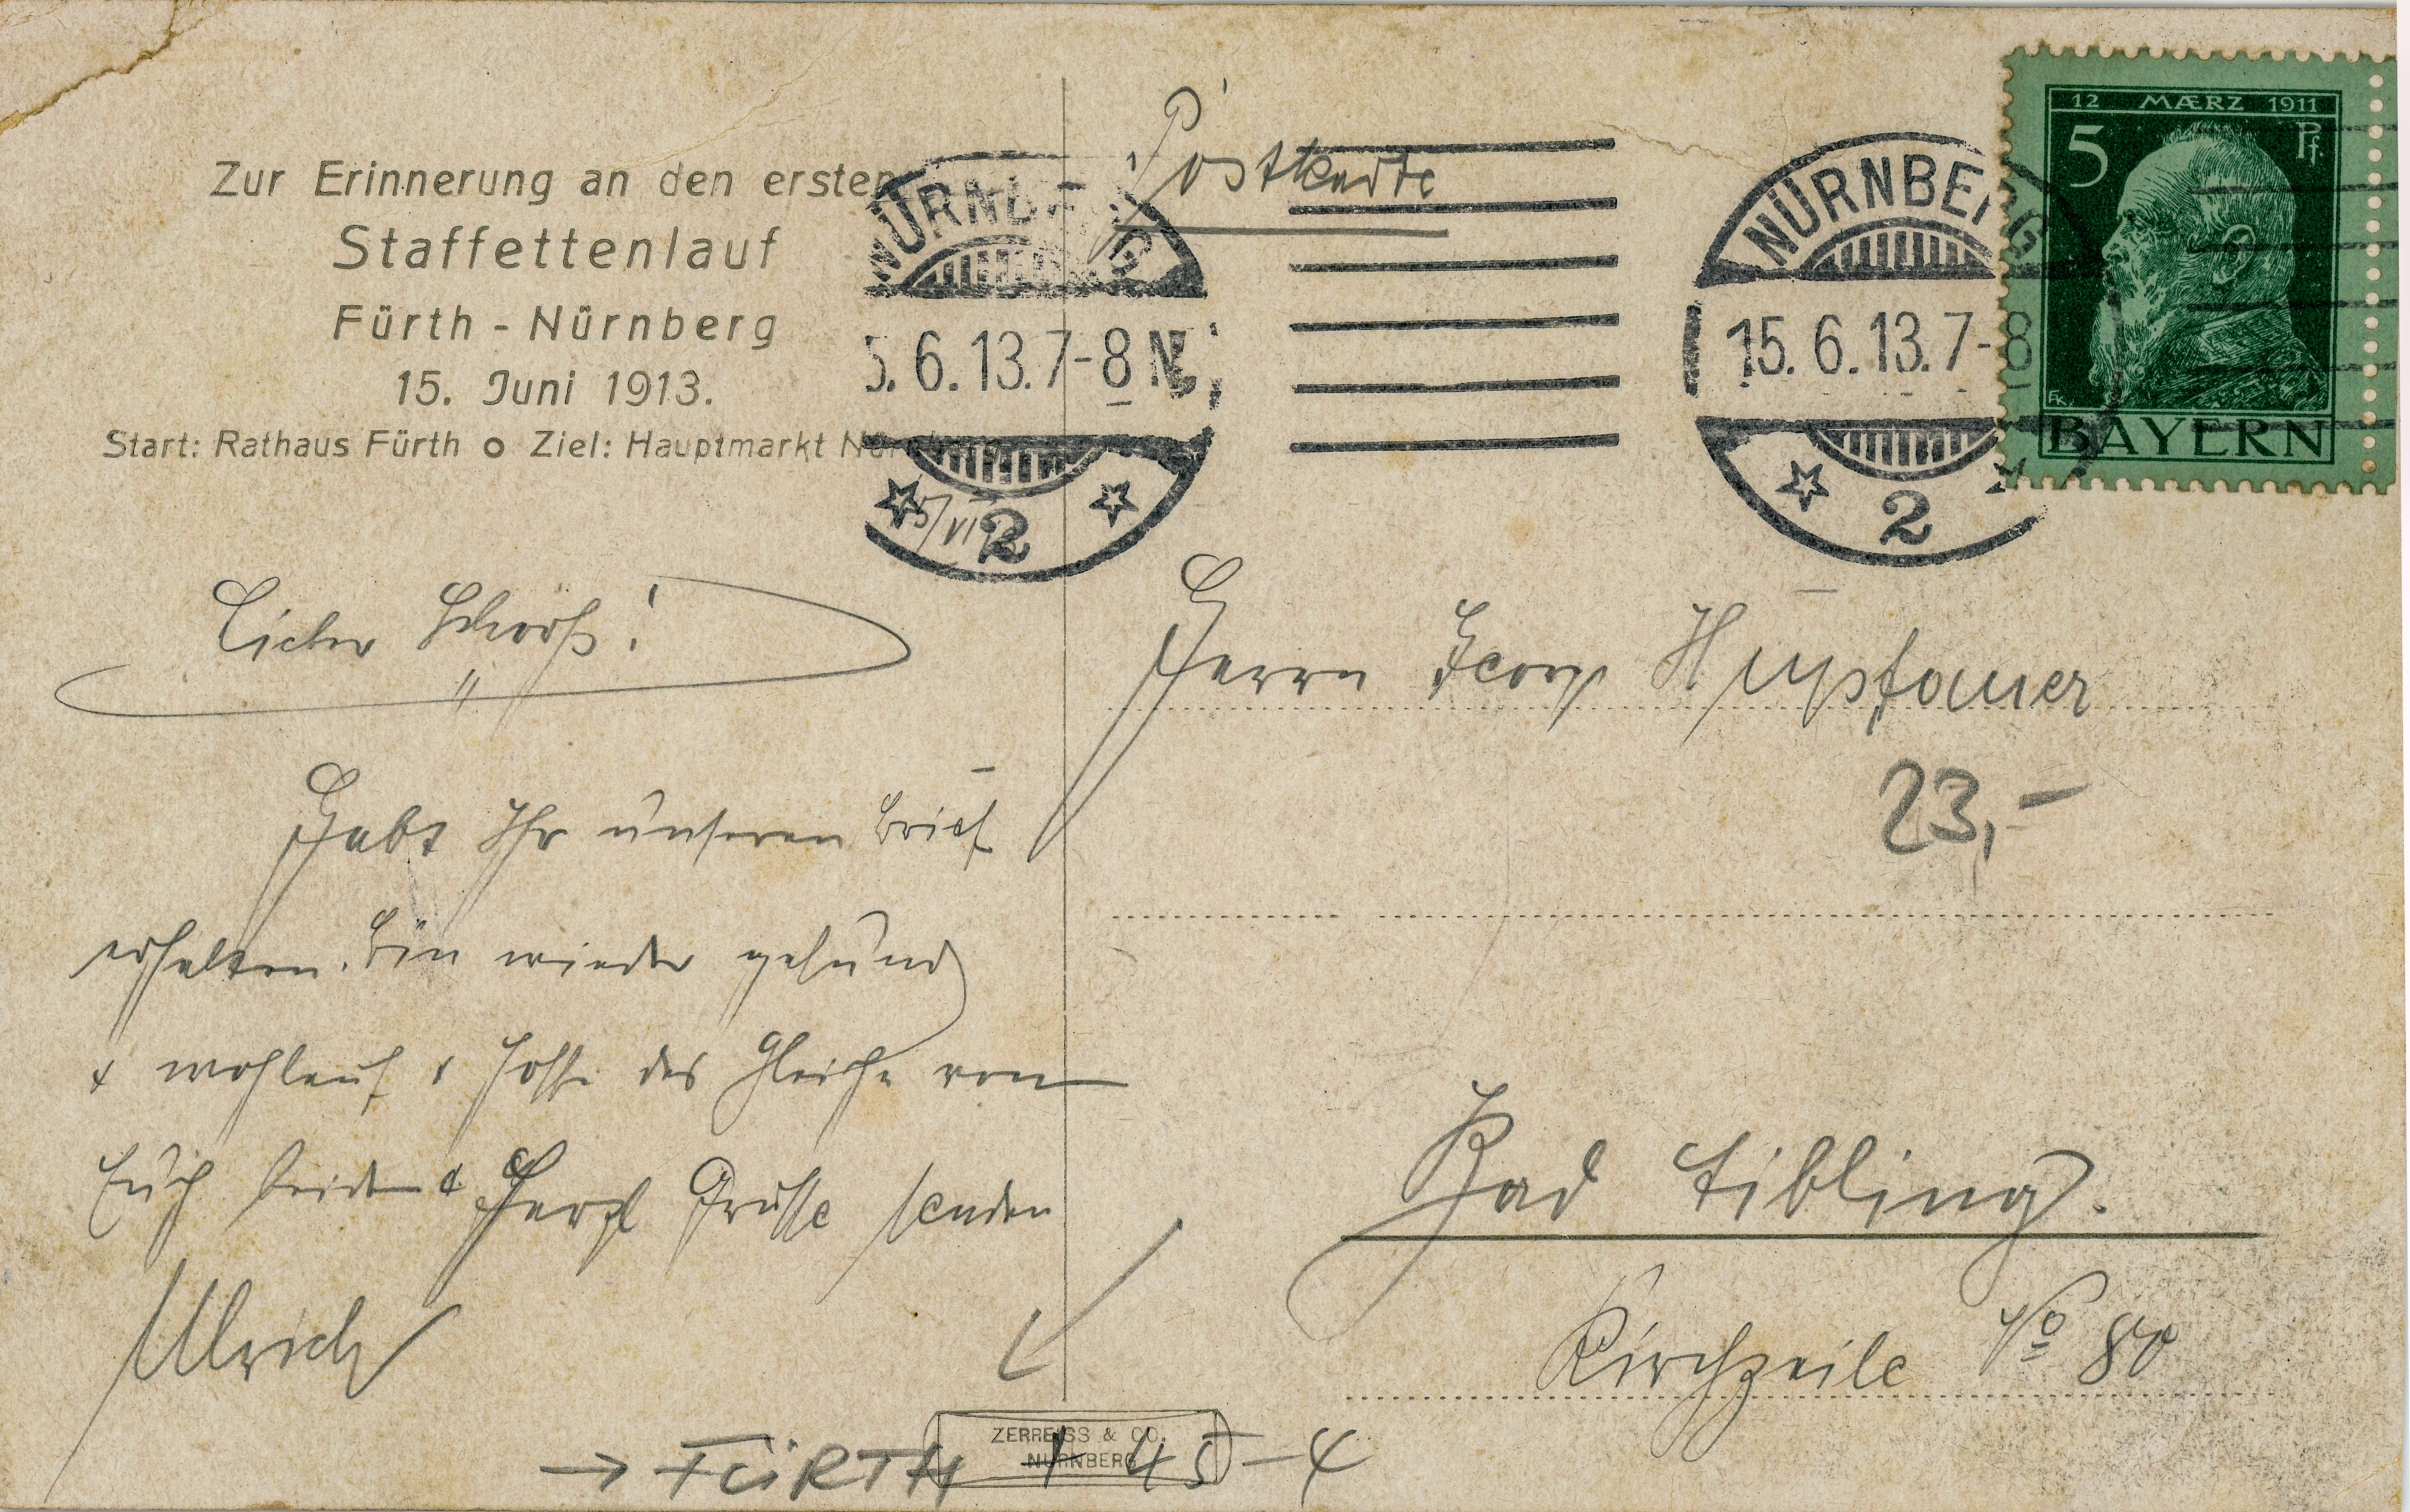 Zur Erinnerung an den ersten
Staffettenlauf
Fürth - Nürnberg
15. Juni 1913.
Start: Rathaus Fürth o Ziel: Hauptmarkt Nürnberg
Postkarte
NÜRNBERG
5.6.13.7-8 N.
2
NÜRNBERG
15.6.13.7-8
2
12 MÆRZ 1911
5 Pf.
BAYERN
Lieber Schorsch!
Habt Ihr unseren Brief
erhalten. Bin wieder gesund
+ wohlauf + hoffe das Gleiche von
Euch beiden + Herzl Grüsse senden
Ulrich
Herrn Georg Hupfauer
23,-
Bad Aibling.
Kirchzeile No 80
ZERREISS & CO.
NÜRNBERG
→ FÜRTH 1 45-4